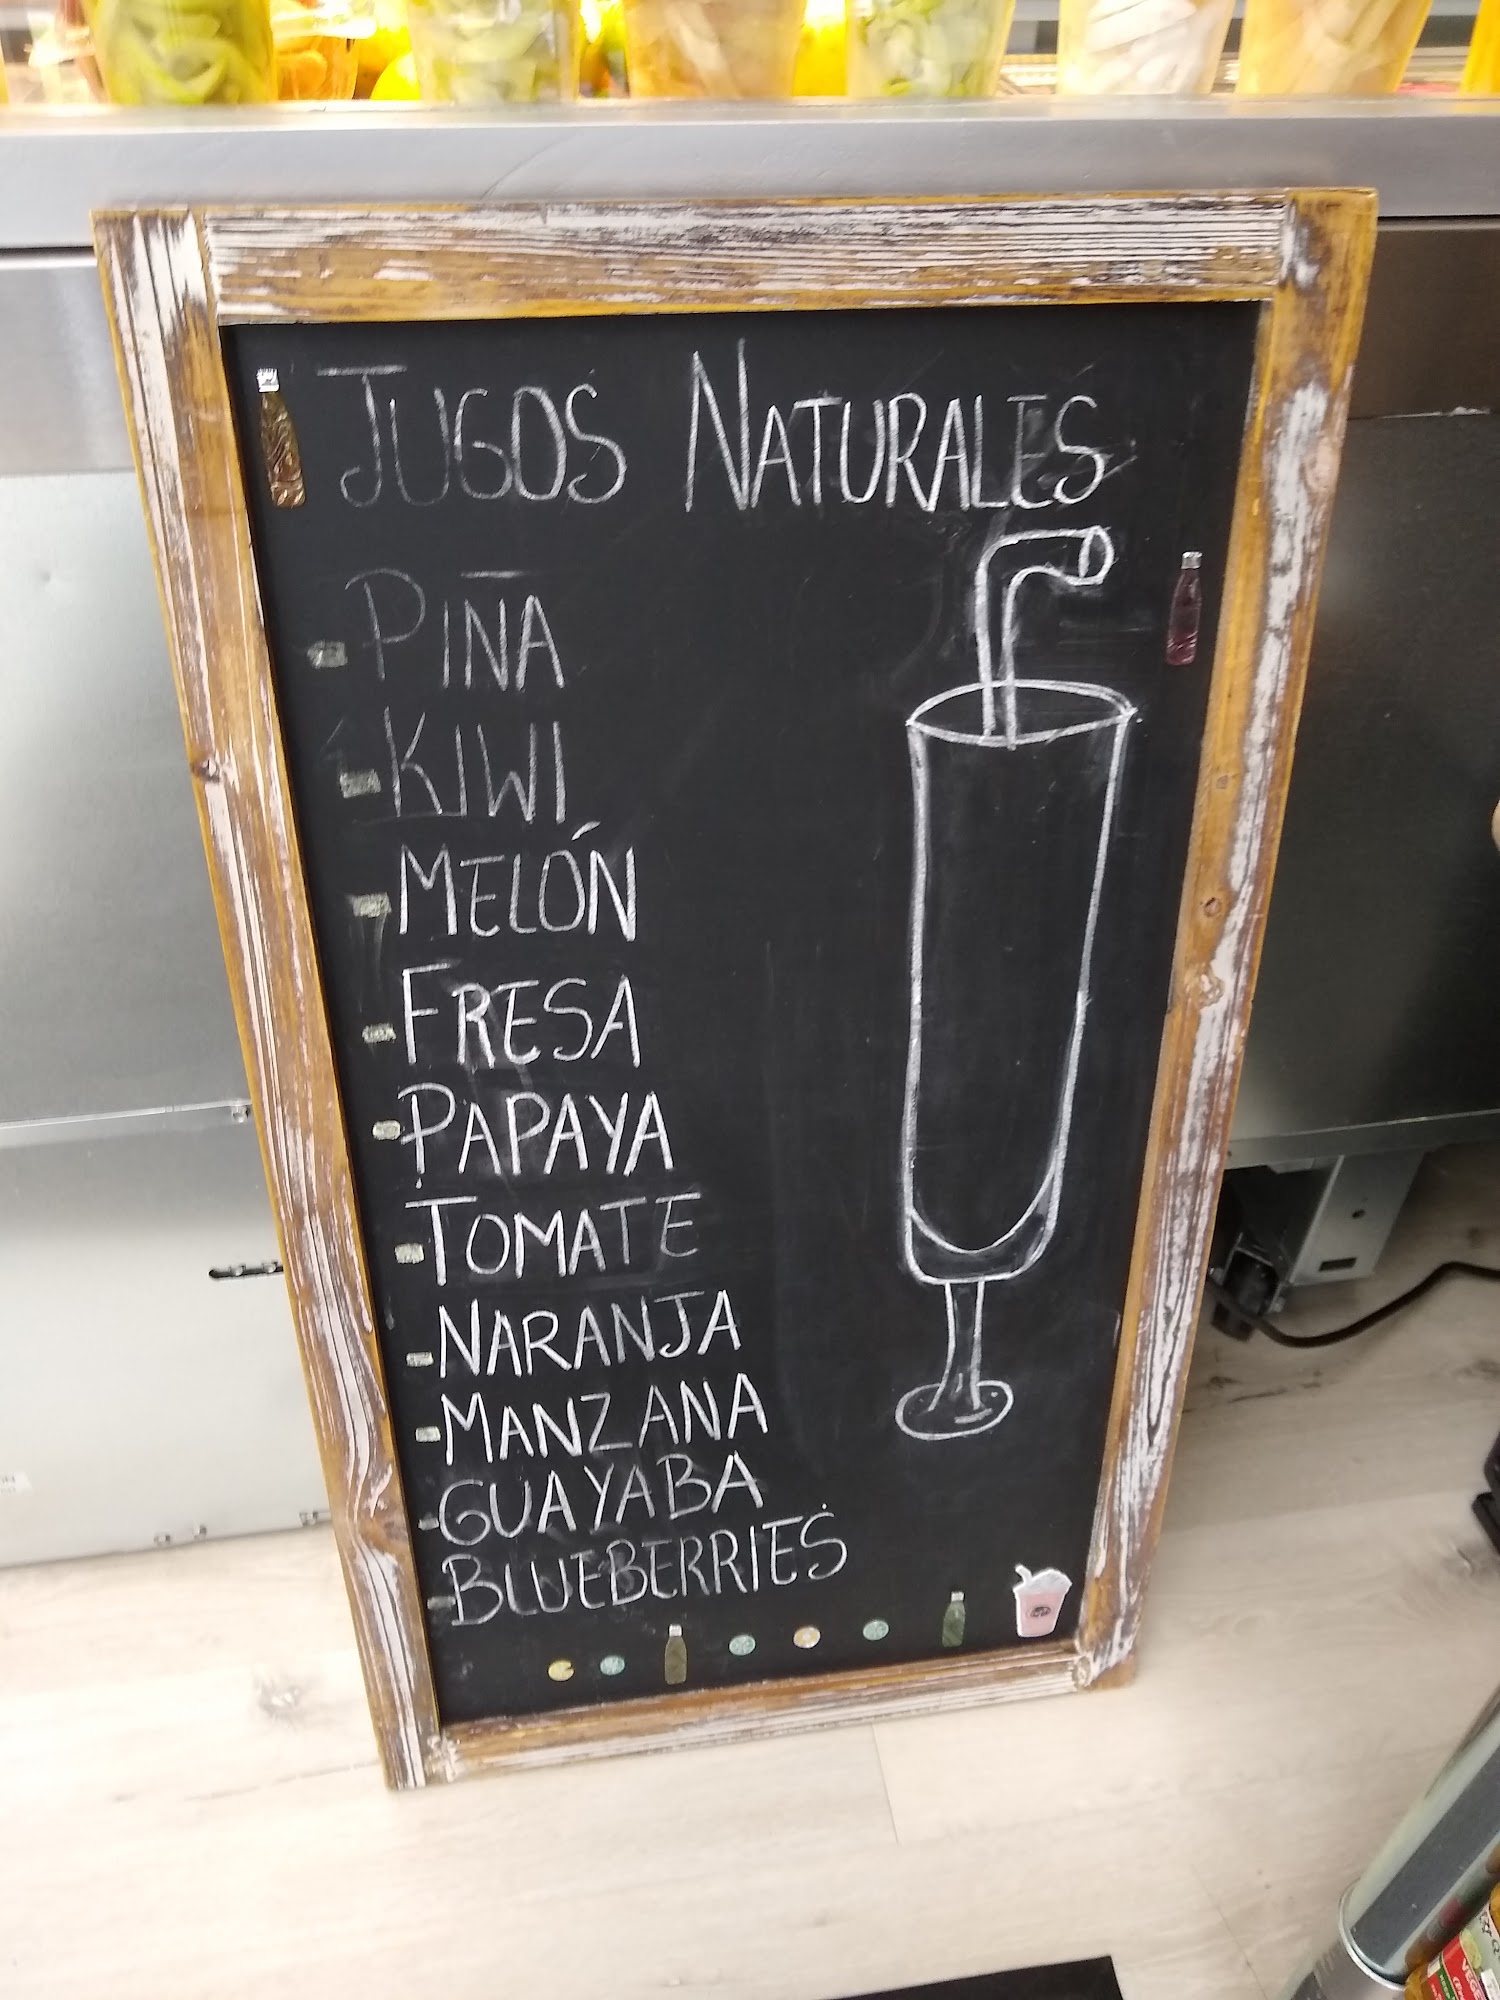 JUGOS NATURALES
PIÑA
KIWI
MELÓN
FRESA
PAPAYA
TOMATE
NARANJA
MANZANA
GUAYABA
BLUEBERRIES